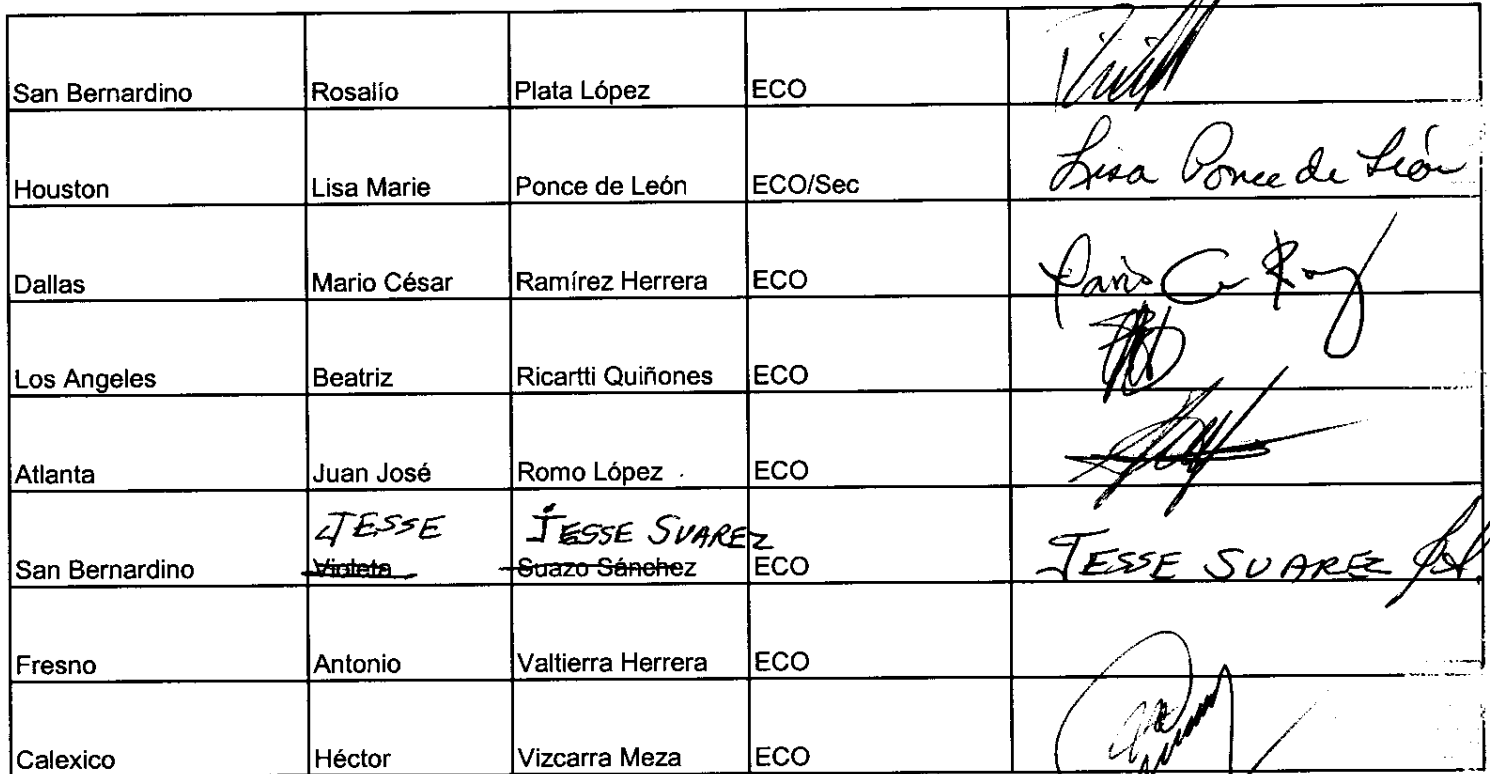 San Bernardino Rosalío Plata López ECO
Houston Lisa Marie Ponce de León ECO/Sec Lisa Ponce de León
Dallas Mario César Ramírez Herrera ECO
Los Angeles Beatriz Ricartti Quiñones ECO
Atlanta Juan José Romo López ECO
JESSE JESSE SUAREZ
San Bernardino Violeta Suazo Sánchez ECO JESSE SUAREZ
Fresno Antonio Valtierra Herrera ECO
Calexico Héctor Vizcarra Meza ECO